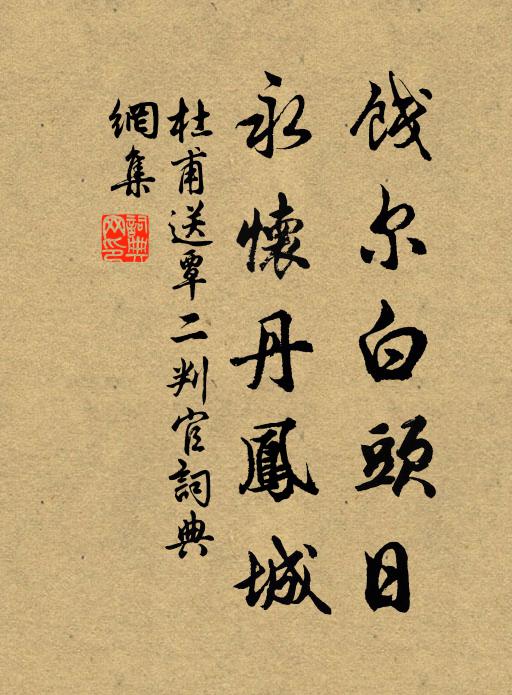 饯尔白頭日
永懷丹鳳城
杜甫送覃二判官詞典
網集
詞典网印